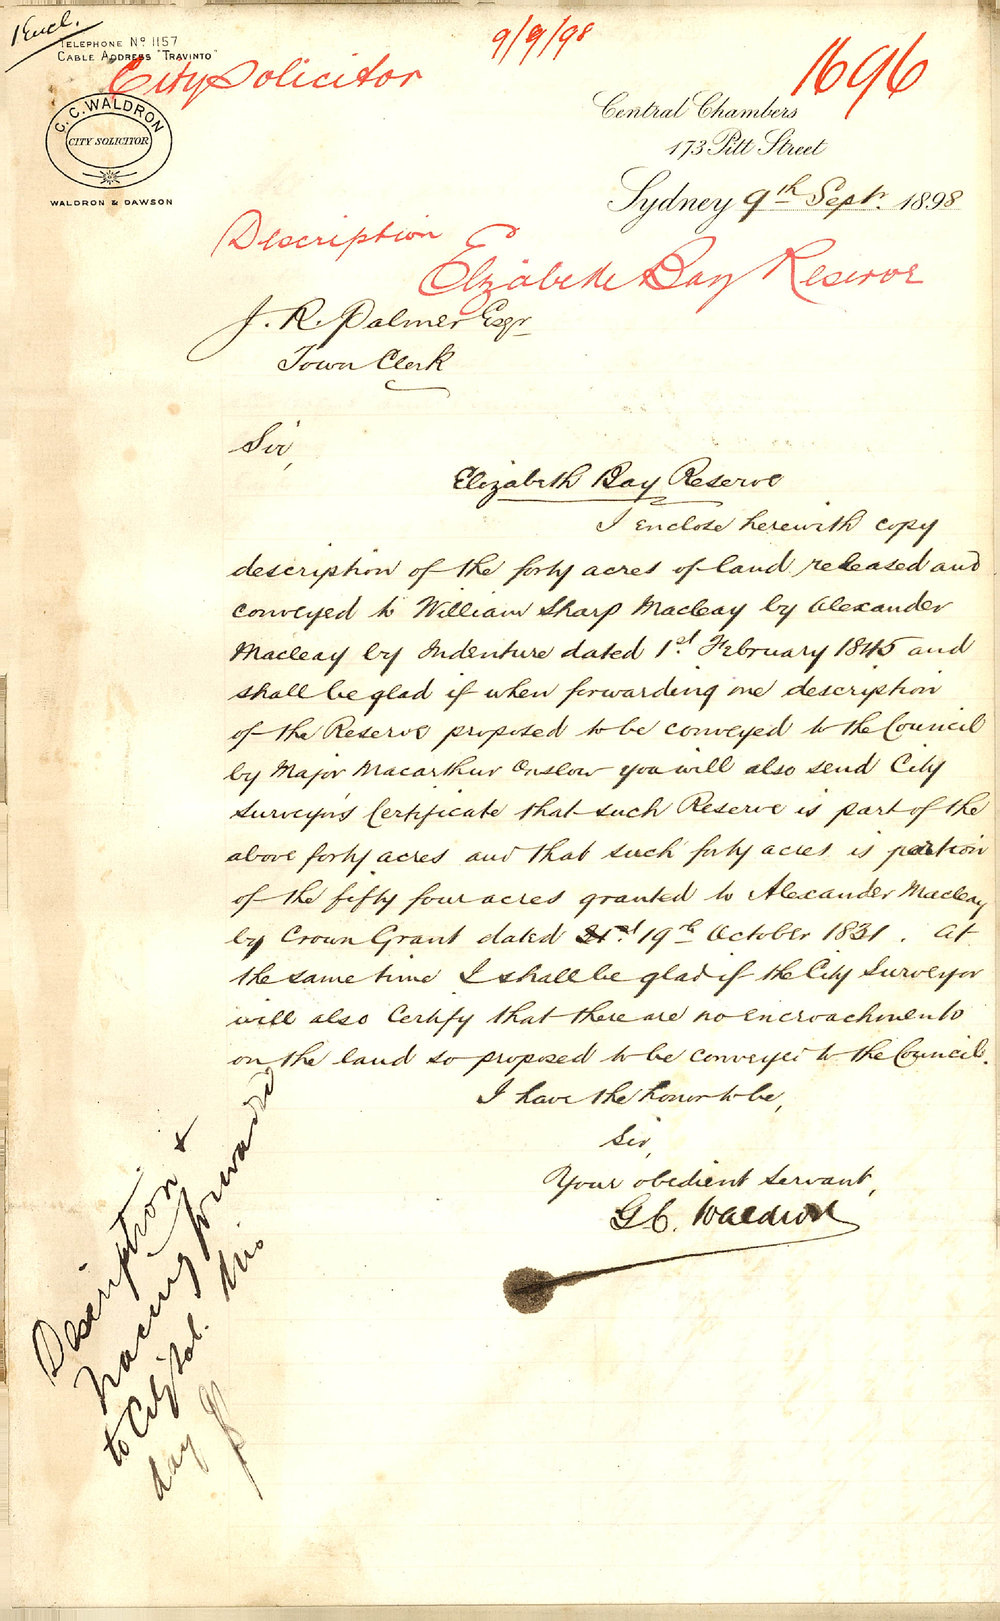 1 Encl.
9/9/98
1696
TELEPHONE No 1157
CABLE ADDRESS "TRAVINTO"
City Solicitor
C. C. WALDRON
CITY SOLICITOR
WALDRON & DAWSON
Central Chambers
173 Pitt Street
Sydney 9th Sept. 1898
Description
Elizabeth Bay Reserve
J. R. Palmer Esqr
Town Clerk
Sir,
Elizabeth Bay Reserve
I enclose herewith copy
description of the forty acres of land released and
conveyed to William Sharp Macleay by Alexander
Macleay by Indenture dated 1st. February 1845 and
shall be glad if when forwarding me description
of the Reserve proposed to be conveyed to the Council
by Major Macarthur Onslow you will also send City
Surveyor's Certificate that such Reserve is part of the
above forty acres and that such forty acres is portion
of the fifty four acres granted to Alexander Macleay
by Crown Grant dated 19th October 1831. At
the same time I shall be glad if the City Surveyor
will also Certify that there are no encroachments
on the land so proposed to be conveyed to the Council.
I have the honor to be,
Sir,
Your obedient servant,
G C. Waldron
Description &
tracing forwarded
to City Sol. this
day